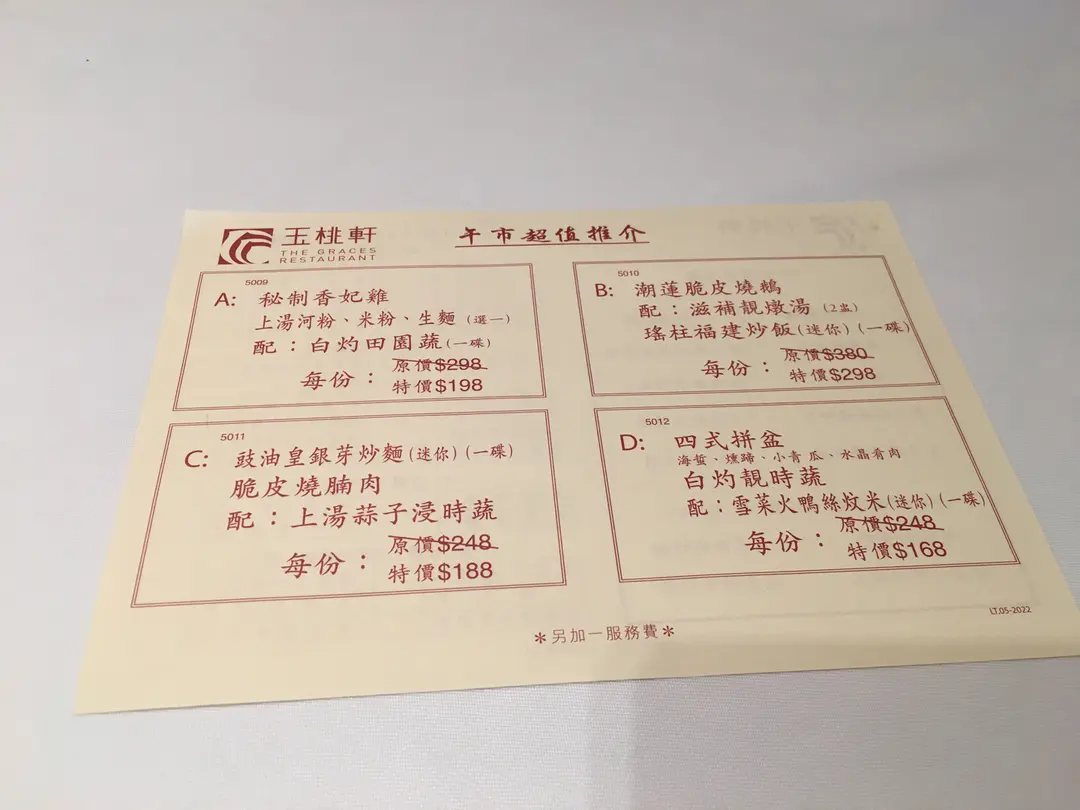 玉桃軒
THE GRACES
RESTAURANT
午市超值推介
5009
A: 秘制香妃雞
上湯河粉、米粉、生麵 (選一)
配：白灼田園蔬(一碟)
每份：
原價$298
特價$198
5010
B: 潮蓮脆皮燒鵝
配：滋補靚燉湯 (2盅)
瑤柱福建炒飯(迷你)(一碟)
每份：
原價$380
特價$298
5011
C: 豉油皇銀芽炒麵(迷你)(一碟)
脆皮燒腩肉
配：上湯蒜子浸時蔬
每份：
原價$248
特價$188
5012
D: 四式拼盆
海蜇、燻蹄、小青瓜、水晶肴肉
白灼靚時蔬
配：雪菜火鴨絲炆米(迷你)(一碟)
每份：
原價$248
特價$168
LT.05-2022
*另加一服務費*